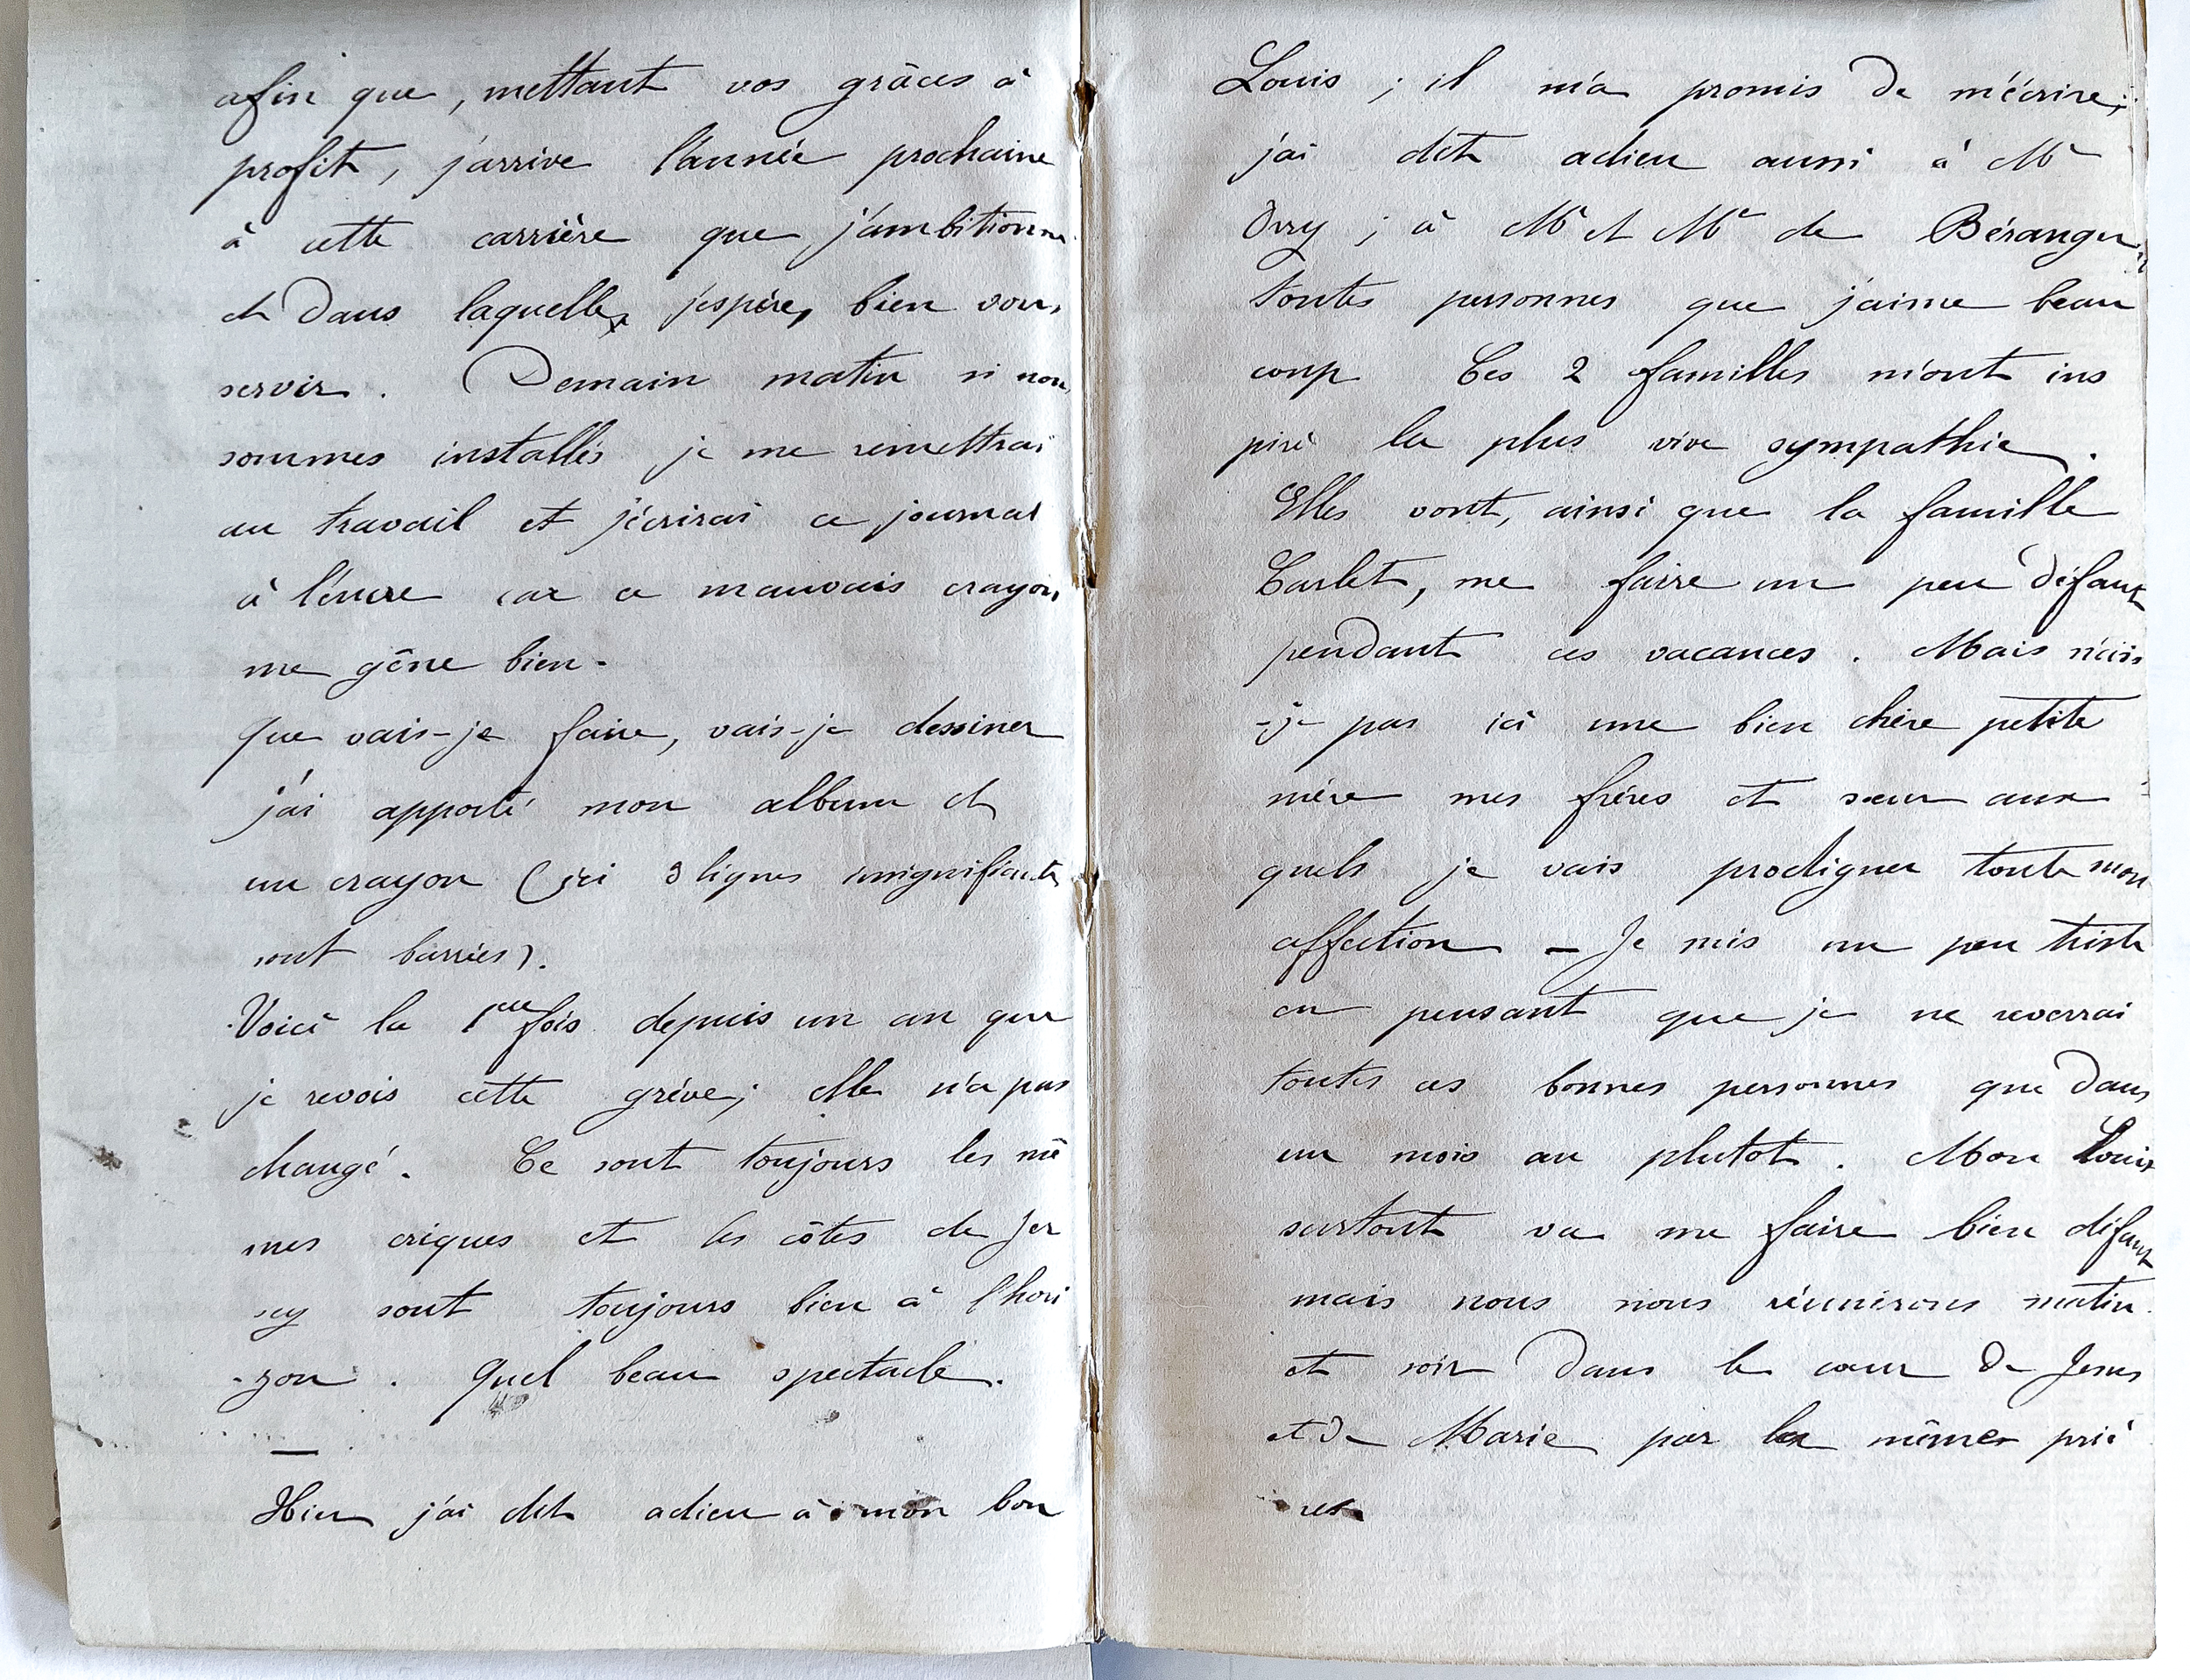 afin que, mettant vos grâces à
profit, j'arrive l'année prochaine
à cette carrière que j'ambitionne
et dans laquelle, j'espère, bien vous
servir. Demain matin si nous
sommes installés je me remettrai
au travail et j'écrirai ce journal
à l'encre car ce mauvais crayon
me gêne bien.
que vais-je faire, vais-je dessiner
j'ai apporté mon album et
un crayon (ici 3 lignes insignifiantes
sont barrées).
Voici la 1ère fois depuis un an que
je revois cette grève; elle n'a pas
changé. Ce sont toujours les mê
mes criques et les côtes de Jer
sey sont toujours bien à l'hori
-zon. Quel beau spectacle.
—
Hier j'ai dit adieu à mon bon
Louis ; il m'a promis de m'écrire;
j'ai dit adieu aussi à Mr
; à Mr et Me de Béranger,
toutes personnes que j'aime beau
coup Ces 2 familles m'ont ins
piré la plus vive sympathie.
Elles vont, ainsi que la famille
Carlet, me faire un peu défaut
pendant ces vacances. Mais n'ais
-je pas ici une bien chère petite
mère mes frères et sœur aux
quels je vais prodiguer toute mon
affection — Je suis un peu triste
en pensant que je ne reverrai
toutes ces bonnes personnes que dans
un mois au plutot. Mon Louis
surtout va me faire bien défaut
mais nous nous réunirons matin
et soir dans le cœur de Jesus
et de Marie par les mêmes priè
res